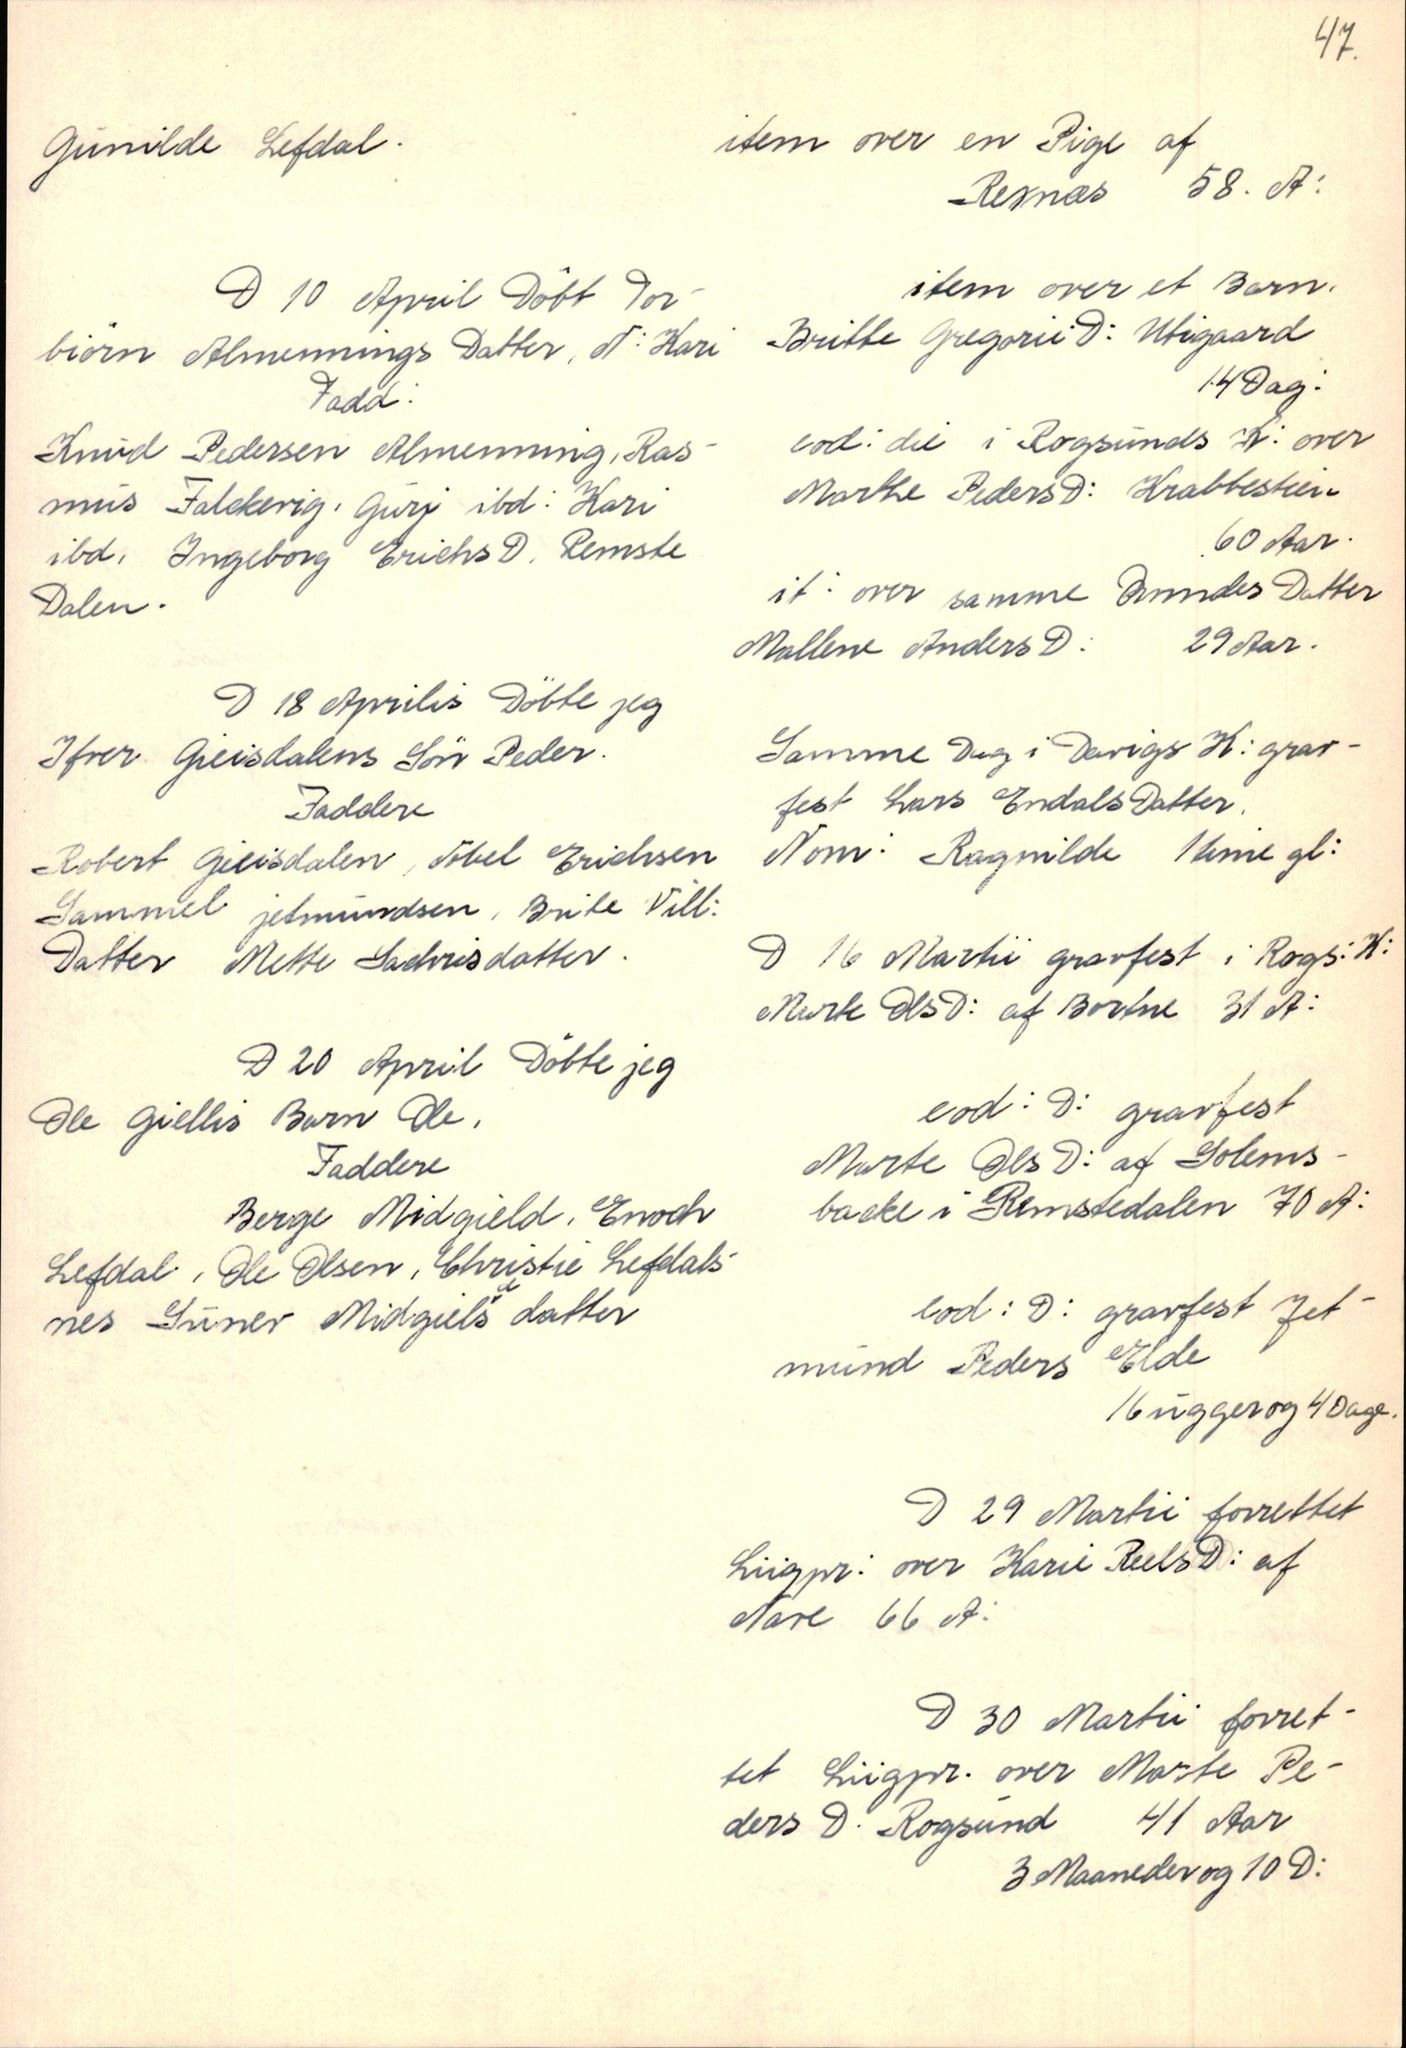 47.
Gunilde Lefdal.
D 10 April Döbt Tor-
biörn Almennings Datter, N: Kari
Fadd:
Knud Pedersen Almenning, Ras-
mus Falckevig, Gurj ibd: Kari
ibd, Ingeborg Erichs D. Remste
Dalen.
D 18 Aprilis Döbte jeg
Ifver Gieisdalens Sön Peder.
Faddere
Robert Gieisdalen, Abel Erichsen
Sammel jetmundsen, Brite Vill:
Datter Mette Sachrisdatter.
D 20 April Döbte jeg
Ole Giellis Barn Ole,
Faddere
Berge Midgield, Enoch
Lefdal, Ole Olsen, Christie Lefdals-
nes Suner Midgiels datter
item over en Pige af
Rexnæs 58. A:
item over et Barn.
Britte Gregorii D: Utigaard
14 Dag:
eod: die i Rogsunds K: over
Marthe Peders D: Krabbestien
60 Aar.
it: over samme Qvindes Datter
Mallene Anders D: 29 Aar.
Samme Dag i Davigs K: grav-
fest Lars Endals Datter.
Nom: Ragnilde 1 time gl:
D 16 Martii gravfest i Rogs: K:
Marte Ols D: af Bortne 31 A:
eod: D: gravfest
Marte Ols D: af Solems-
backe i Remstedalen 70 A:
eod: D: gravfest Jet-
mund Peders Elde
16 ugger og 4 Dage.
D 29 Martii forrettet
Liigpr: over Karie Reels D: af
Nave 66 A:
D 30 Martii forret-
tet Liigpr. over Marte Pe-
ders D. Rogsund 41 Aar
3 Maaneder og 10 D: